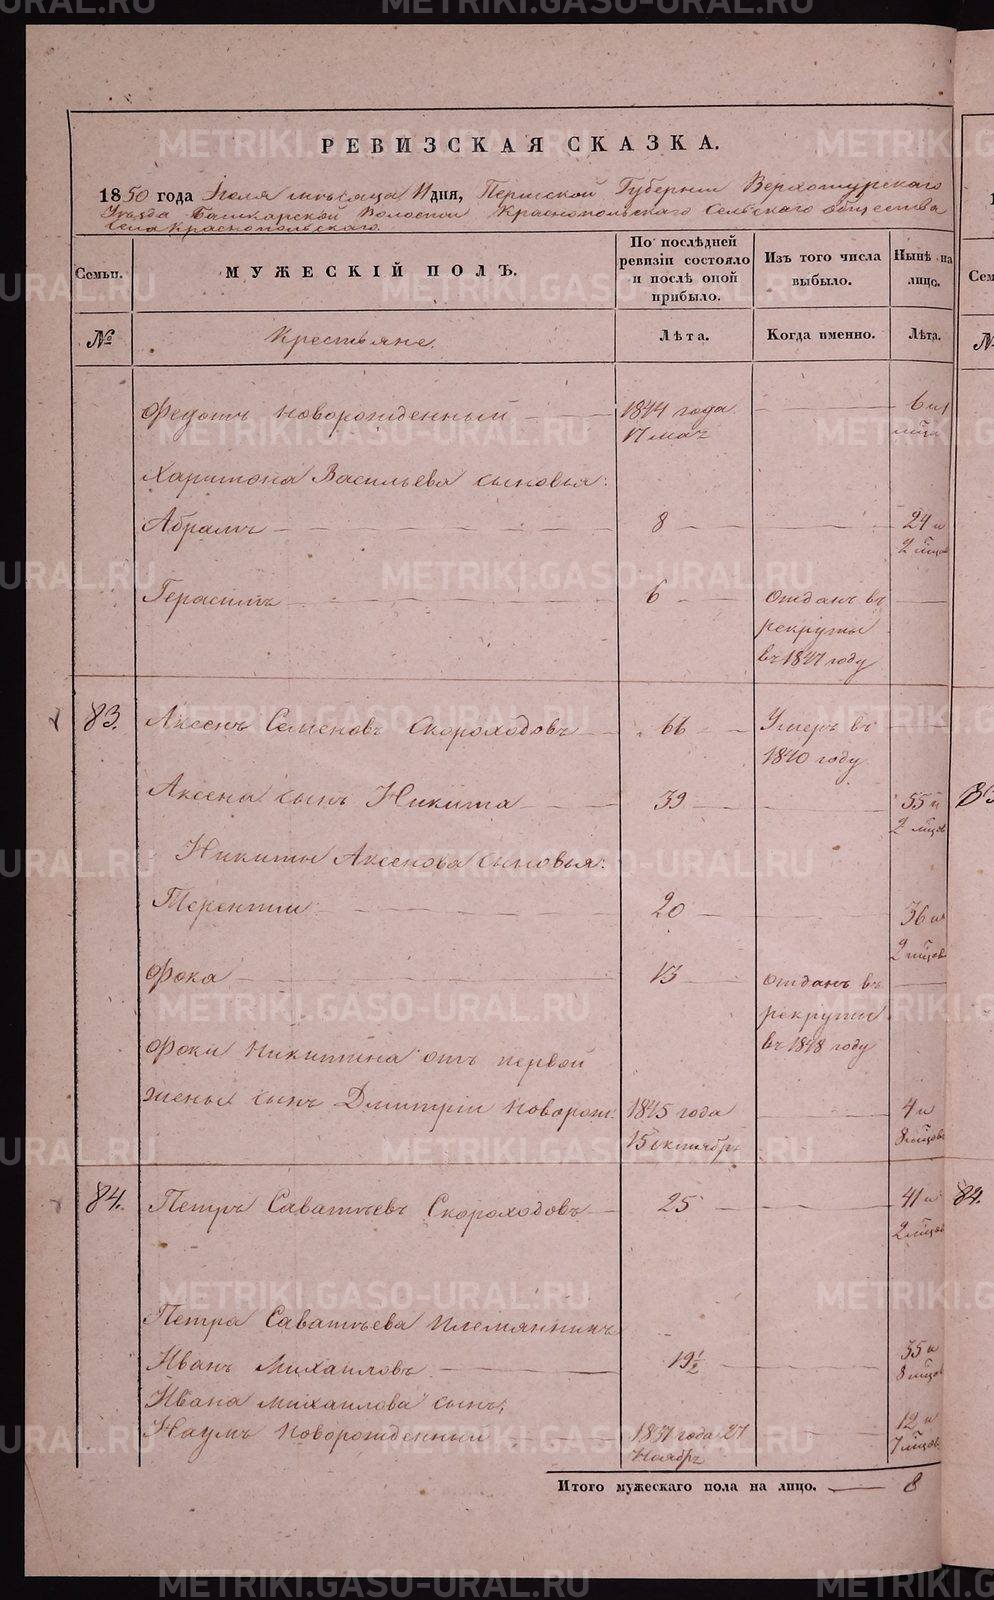 РЕВИЗСКАЯ СКАЗКА.
1850 года Іюля мѣсяца 11 дня, Пермской Губерніи Верхотурскаго
Уѣзда Башкарской Волости Краснопольскаго Сельскаго общества
Села Краснопольскаго.
Семьи.
МУЖЕСКІЙ ПОЛЪ.
По послѣдней ревизіи состояло и послѣ оной прибыло.
Изъ того числа выбыло.
Нынѣ на лицо.
Сем
№
Крестьяне.
Лѣта.
Когда именно.
Лѣта.
№
Федотъ новорожденный 1844 года 17 мая 6
Харитона Васильева сыновья:
Абрамъ 8 24 и 2 мѣсяц
Герасимъ 6 отданъ въ рекруты въ 1847 году
83. Аксенъ Семеновъ Скороходовъ 66 Умеръ въ 1840 году
Аксена сынъ Никита 39 55 и 2 мѣсяц
Никиты Аксенова сыновья:
Терентій 20 36 и 2 мѣсяц
Фока 13 отданъ въ рекруты въ 1848 году
Фоки Никитина отъ первой
жены сынъ Дмитрій новорож: 1845 года 15 октябр 4 и 8 мѣсяц
84. Петръ Саватѣевъ Скороходовъ 25 41 и 2 мѣсяц
84.
Петра Саватѣева племянникъ
Иванъ Михаиловъ 19½ 35 и 8 мѣсяц
Ивана Михаилова сынъ,
Наумъ новорожденный 1837 года 27 Ноябр 12 и 7 мѣсяц
Итого мужескаго пола на лицо. 8
METRIKI.GASO-URAL.RU